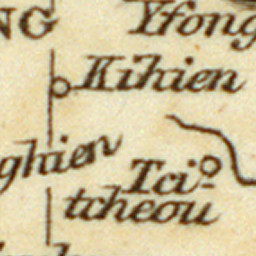 NG
Yfong
Kihien
ghien
Tci-
tcheou